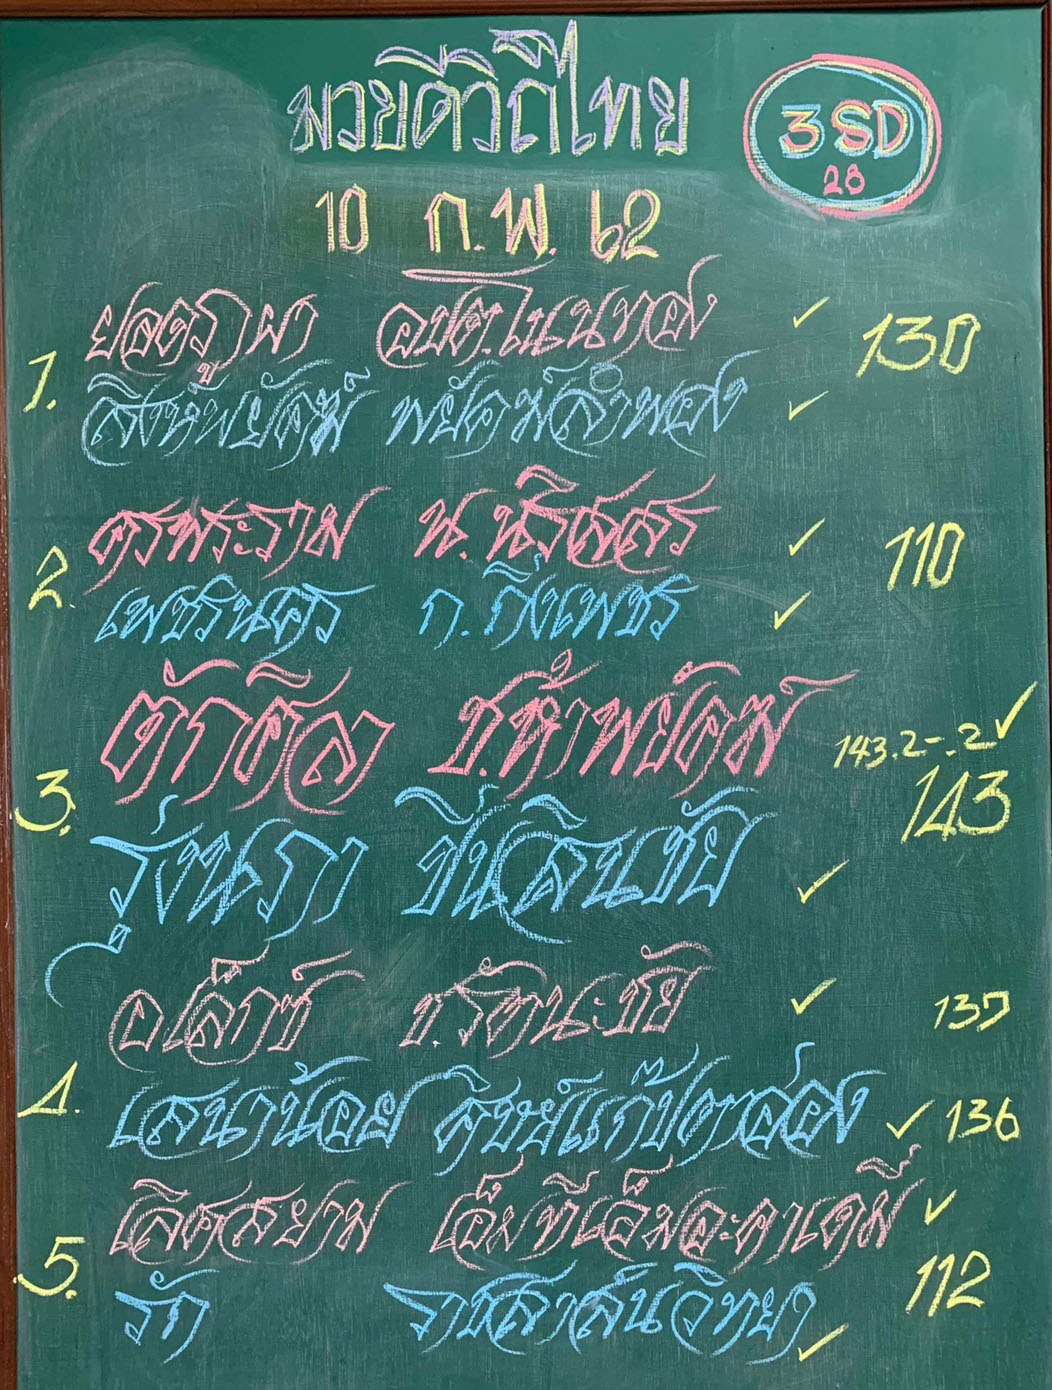 มวยดีวิถีไทย
3SD
28
10 ก.พ. 62
1. ยอดภูผา อบต.โนนทอง ✓ 130
สิงห์พยัคฆ์ พยัคฆ์ลำพอง ✓
2. ศรพระราม น. นริสสร ✓ 110
เพชรนคร ก. กิ่งเพชร ✓
3. ต้าศิลา ช.ห้าพยัคฆ์ 143.2-.2 ✓
143
รุ่งนภา ชินศิลนชัย ✓
4. อเล็กซ์ ช.รัตนะชัย ✓ 137
เสนาน้อย ศิษย์แก๊ป ✓ 136
5. เลิศสยาม เอ็มทีเอ็มอะคาเดมี่ ✓
112
รัก ราชสาส์นวิทยา ✓